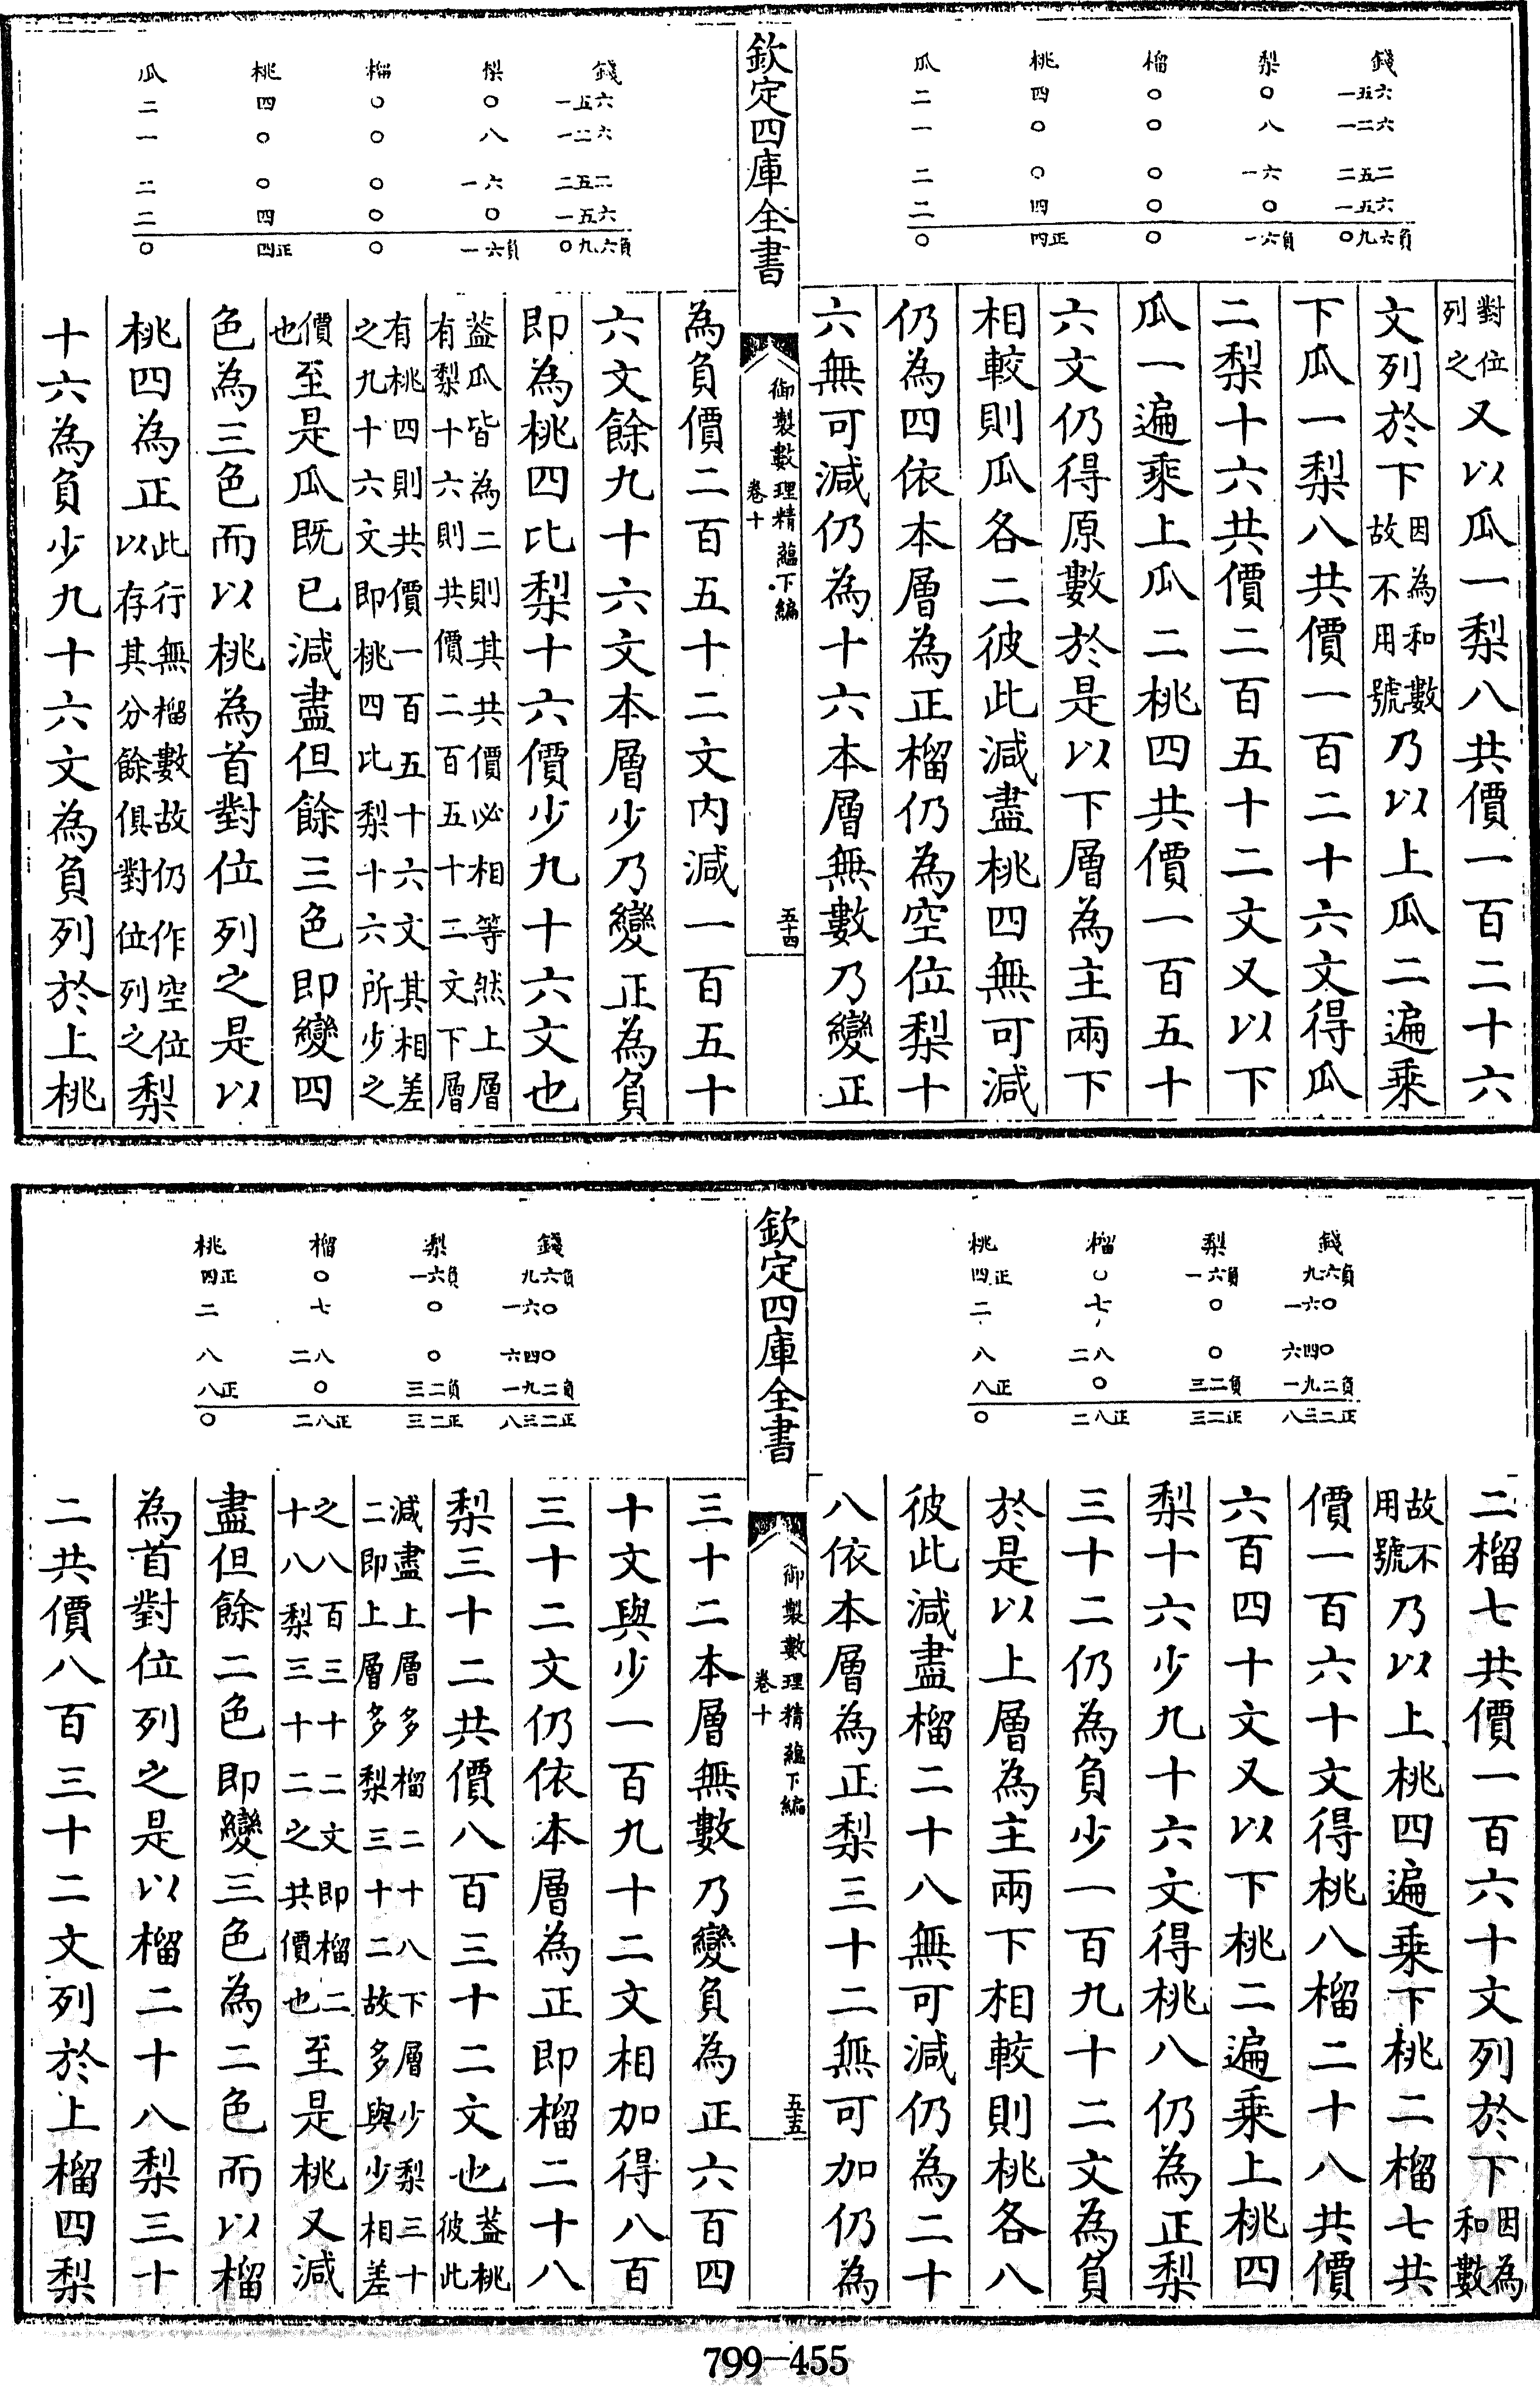 瓜 桃 榴 梨 錢
二 四 〇 〇 一五六
一 〇 〇 八 一二六
二 〇 〇 一六 二五二
二 四 〇 〇 一五六
〇 四正 〇 一六負 〇九六負
對位列之又以瓜一梨八共價一百二十六
文列於下因為和數故不用號乃以上瓜二遍乘
下瓜一梨八共價一百二十六文得瓜
二梨十六共價二百五十二文又以下
瓜一遍乘上瓜二桃四共價一百五十
六文仍得原數於是以下層為主兩下
相較則瓜各二彼此減盡桃四無可減
仍為四依本層為正榴仍為空位梨十
六無可減仍為十六本層無數乃變正
欽定四庫全書
御製數理精蘊下編
卷十
五十四
瓜 桃 榴 梨 錢
二 四 〇 〇 一五六
一 〇 〇 八 一二六
二 〇 〇 一六 二五二
二 四 〇 〇 一五六
〇 四正 〇 一六負 〇九六負
為負價二百五十二文內減一百五十
六文餘九十六文本層少乃變正為負
即為桃四比梨十六價少九十六文也
蓋瓜皆為二則其共價必相等然上層
有梨十六則共價二百五十二文下層
有桃四則共價一百五十六文其相差
之九十六文即桃四比梨十六所少之
價也至是瓜既已減盡但餘三色即變四
色為三色而以桃為首對位列之是以
桃四為正此行無榴數故仍作空位以存其分餘俱對位列之梨
十六為負少九十六文為負列於上桃
桃 榴 梨 錢
四正 〇 一六負 九六負
二 七 〇 一六〇
八 二八 〇 六四〇
八正 〇 三二負 一九二負
〇 二八正 三二正 八三二正
二榴七共價一百六十文列於下因為和數
故不用號乃以上桃四遍乘下桃二榴七共
價一百六十文得桃八榴二十八共價
六百四十文又以下桃二遍乘上桃四
梨十六少九十六文得桃八仍為正梨
三十二仍為負少一百九十二文為負
於是以上層為主兩下相較則桃各八
彼此減盡榴二十八無可減仍為二十
八依本層為正梨三十二無可加仍為
欽定四庫全書
御製數理精蘊下編
卷十
五十五
桃 榴 梨 錢
四正 〇 一六負 九六負
二 七 〇 一六〇
八 二八 〇 六四〇
八正 〇 三二負 一九二負
〇 二八正 三二正 八三二正
三十二本層無數乃變負為正六百四
十文與少一百九十二文相加得八百
三十二文仍依本層為正即榴二十八
梨三十二共價八百三十二文也蓋桃彼此
減盡上層多榴二十八下層少梨三十
二即上層多梨三十二故多與少相差
之八百三十二文即榴二十八梨三十二之共價也至是桃又減
盡但餘二色即變三色為二色而以榴
為首對位列之是以榴二十八梨三十
二共價八百三十二文列於上榴四梨
799-455